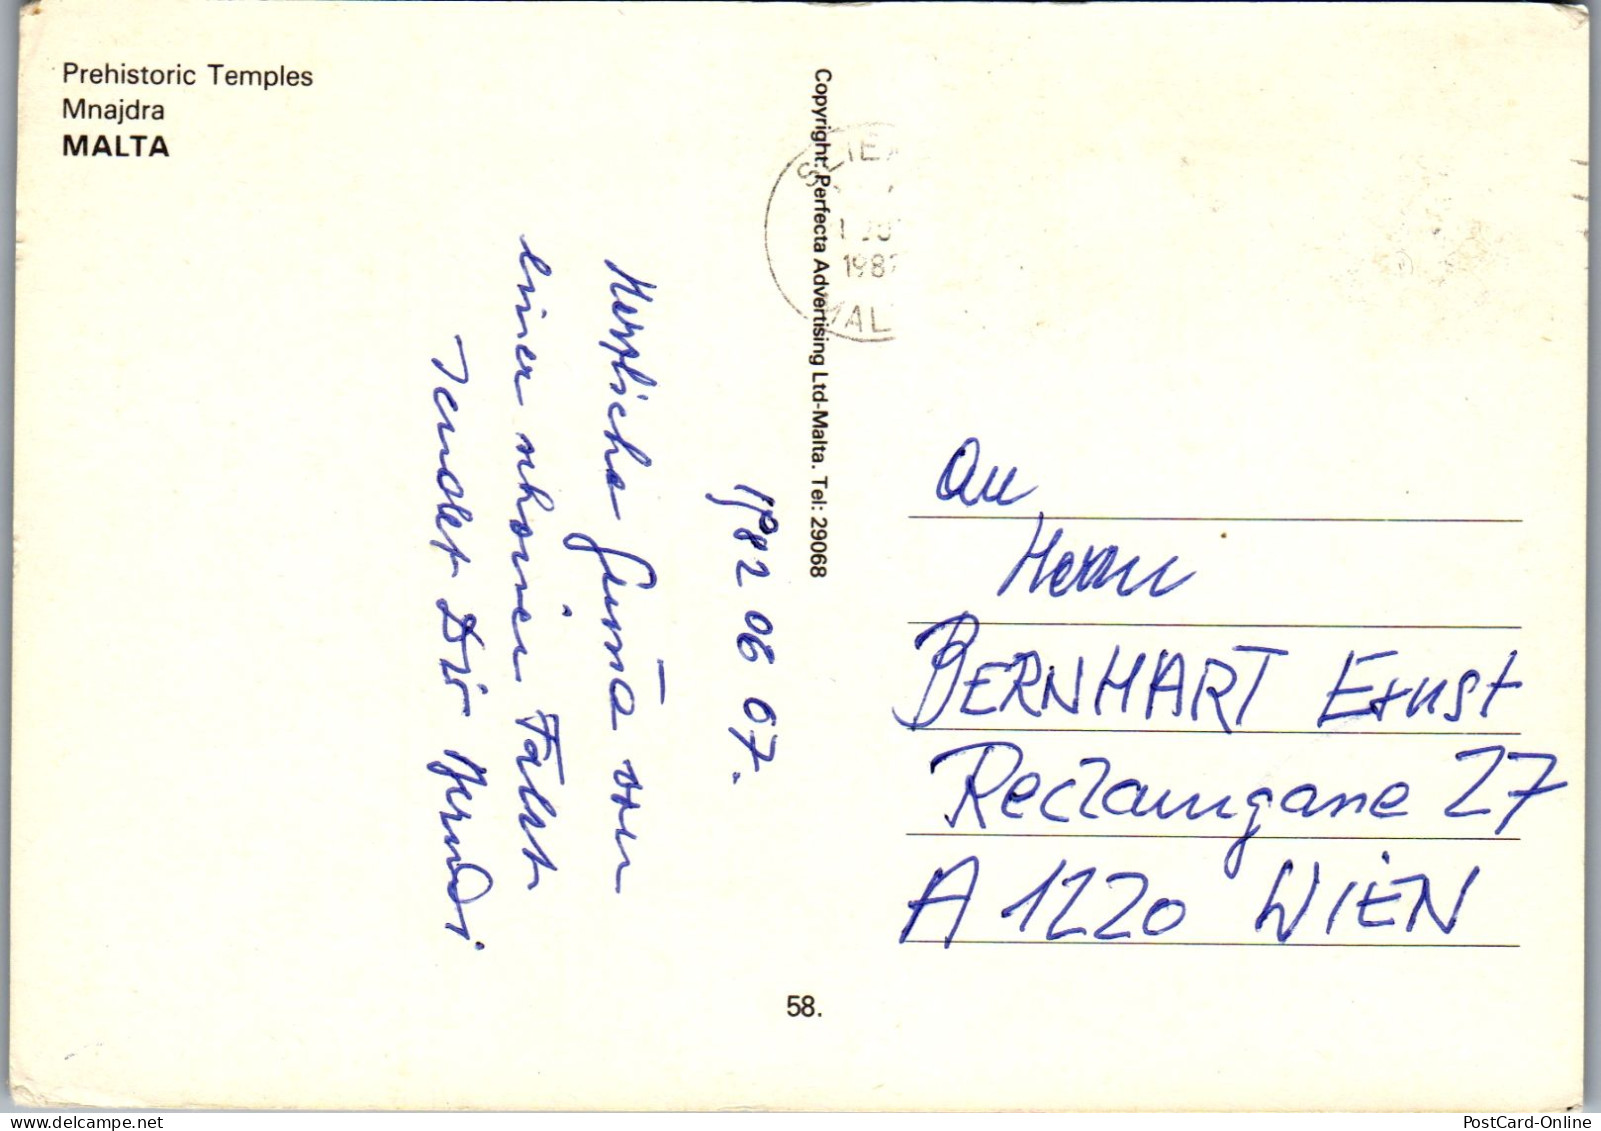 Prehistoric Temples
Mnajdra
MALTA
Copyright: Perfecta Advertising Ltd-Malta. Tel: 29068
1982 06 07.
Herzliche Grüße von
einer schönen Fahrt
sendet Dir
An
Herrn
BERNHART Ernst
Reclamgasse 27
A 1220 WIEN
58.
PostCard-Online